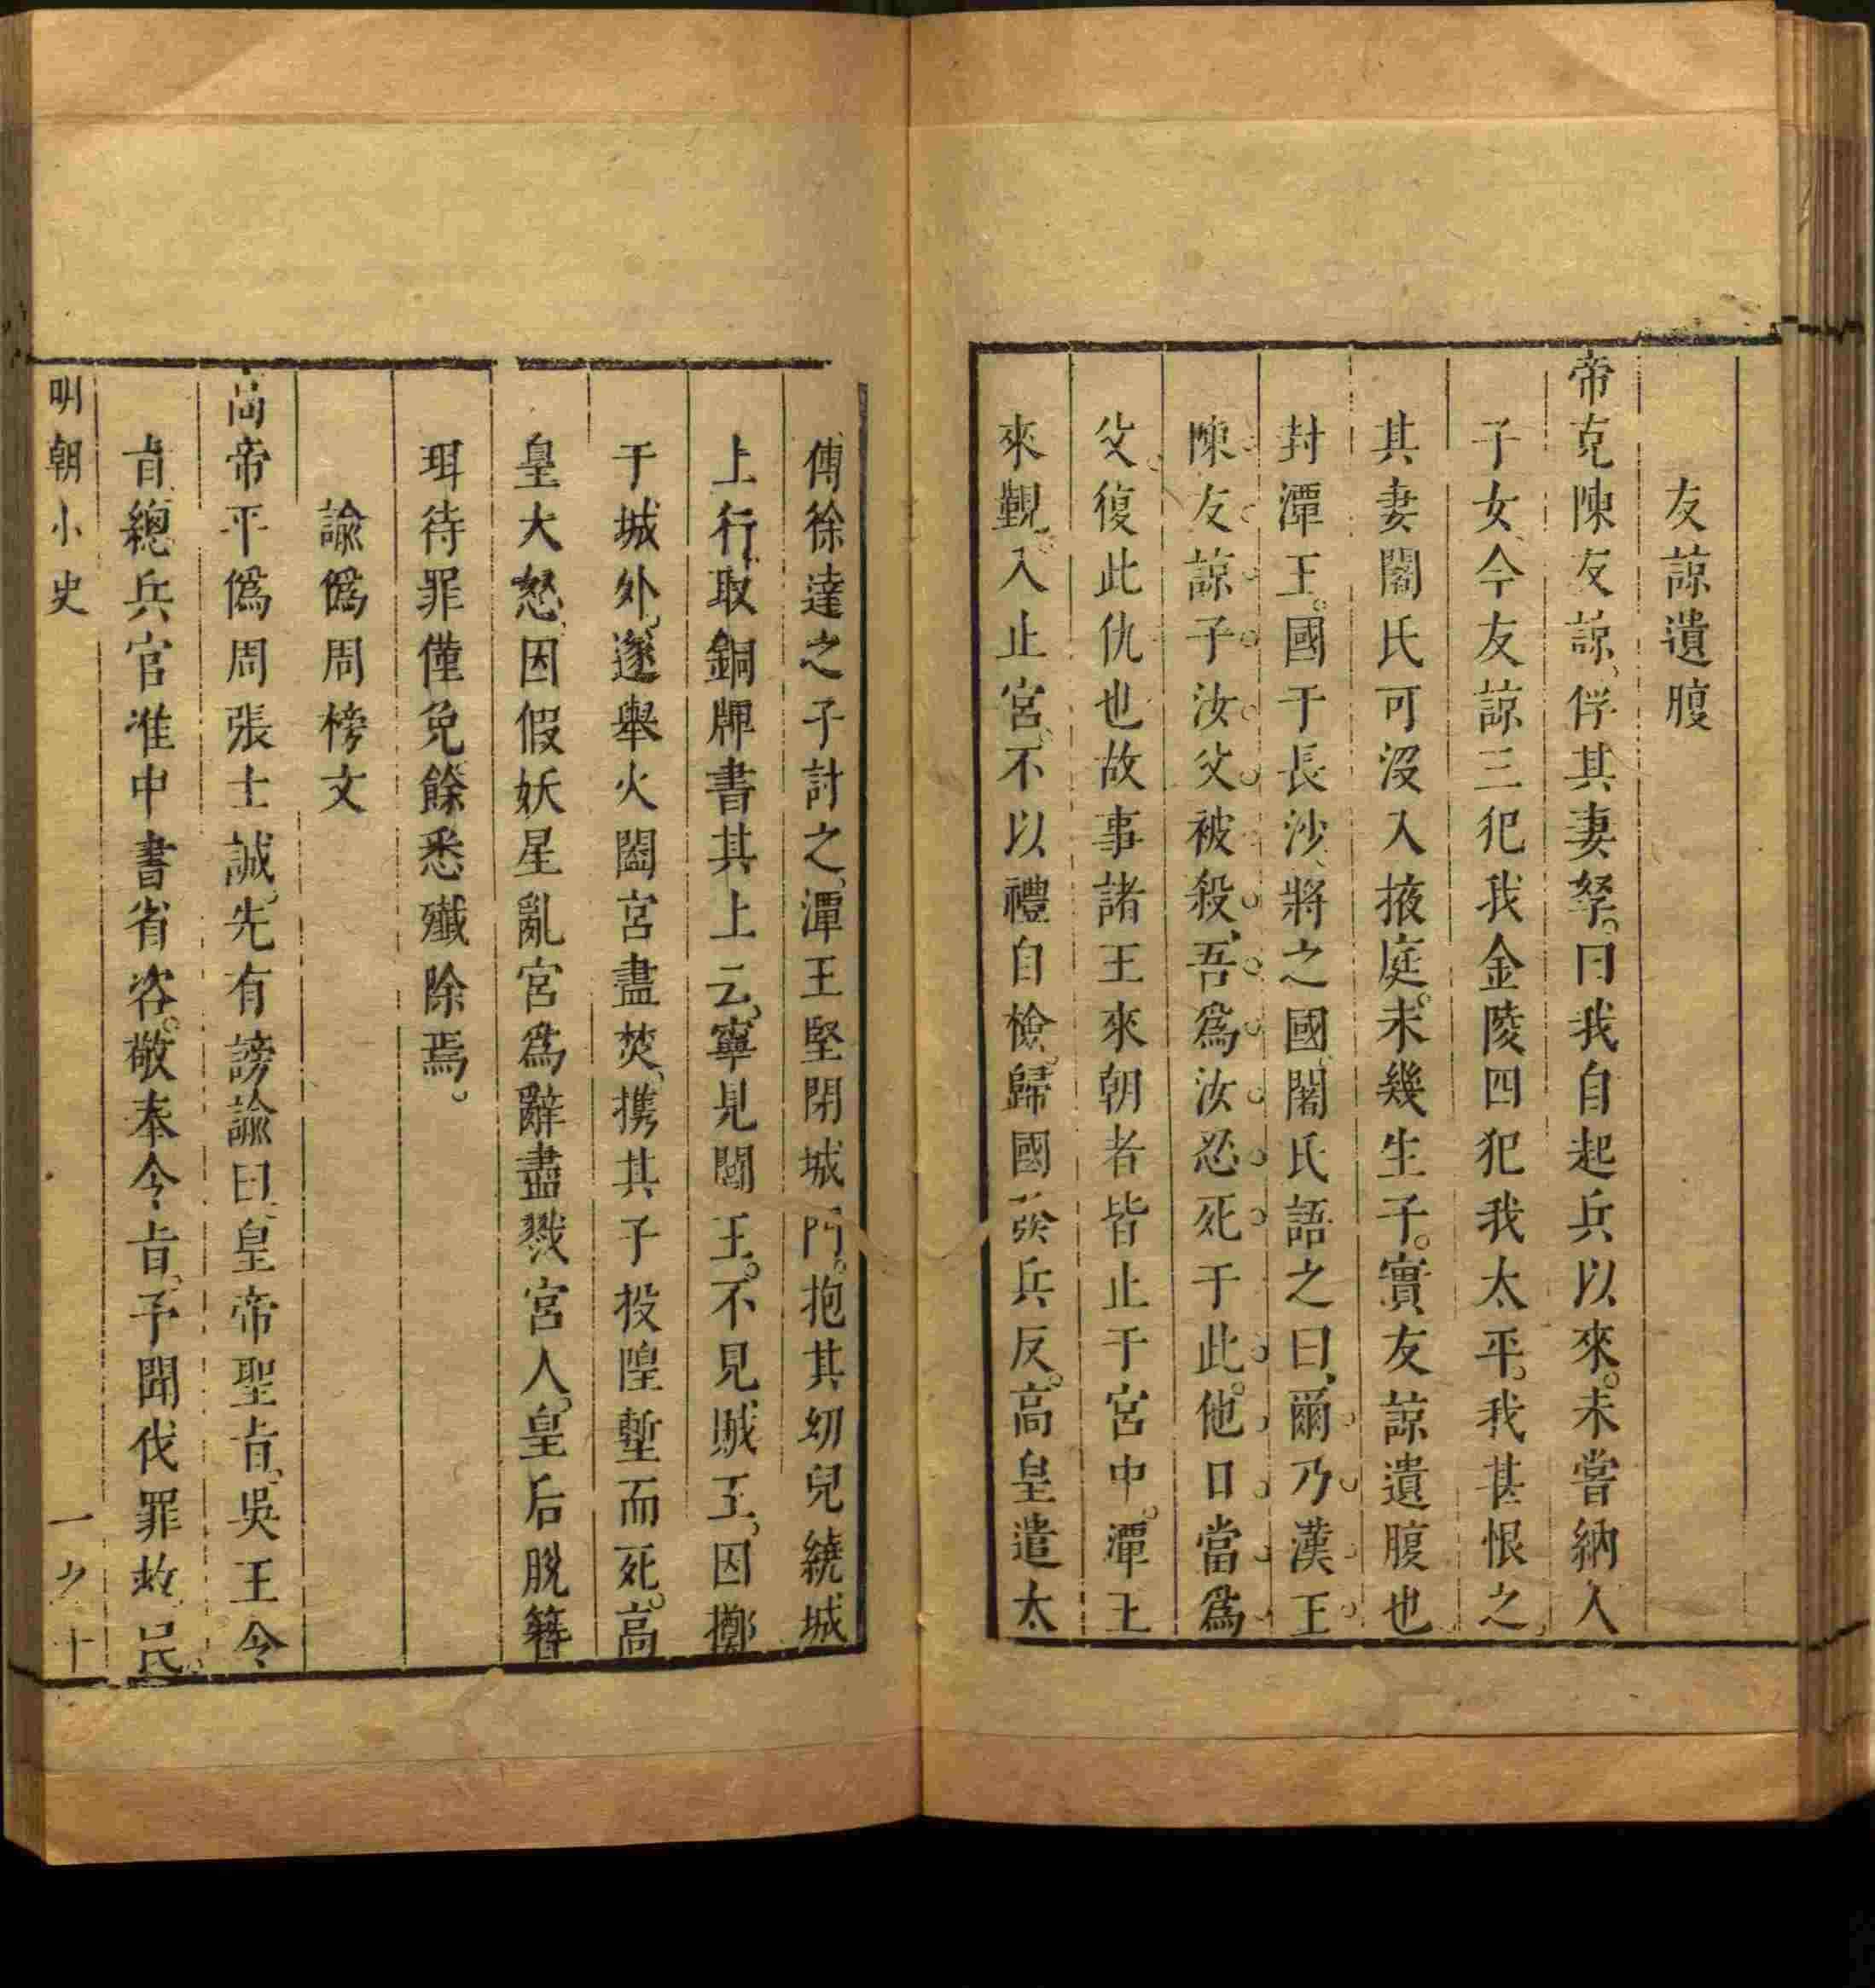 友諒遺腹
帝克陳友諒、俘其妻孥。曰我自起兵以來。未嘗納人
子女、今友諒三犯我金陵四犯我太平。我甚恨之、
其妻闍氏可沒入掖庭。未幾生子。實友諒遺腹也
封潭王。國于長沙、將之國、闍氏語之曰、爾乃漢王
陳友諒子汝父被殺、吾爲汝忍死于此。他日當爲
父、復此仇也故事諸王來朝者皆止于宮中。潭王
來覲。入止宮、不以禮自檢。歸國發兵反。高皇遣太
傅徐達之子討之、潭王堅閉城門。抱其幼兒繞城
上行、取銅牌書其上云、寧見閻王。不見賊王。因擲
于城外、遂舉火闔宮盡焚、携其子投隍塹而死。高
皇大怒、因假妖星亂宮爲辭盡戮宮人。皇后脫簪
珥待罪僅免餘悉殲除焉。
諭僞周榜文
高帝平僞周張士誠。先有謗諭曰、皇帝聖旨、吳王令
旨、總兵官准中書省咨。敬奉令旨、予聞伐罪救民。
明朝小史 一 十